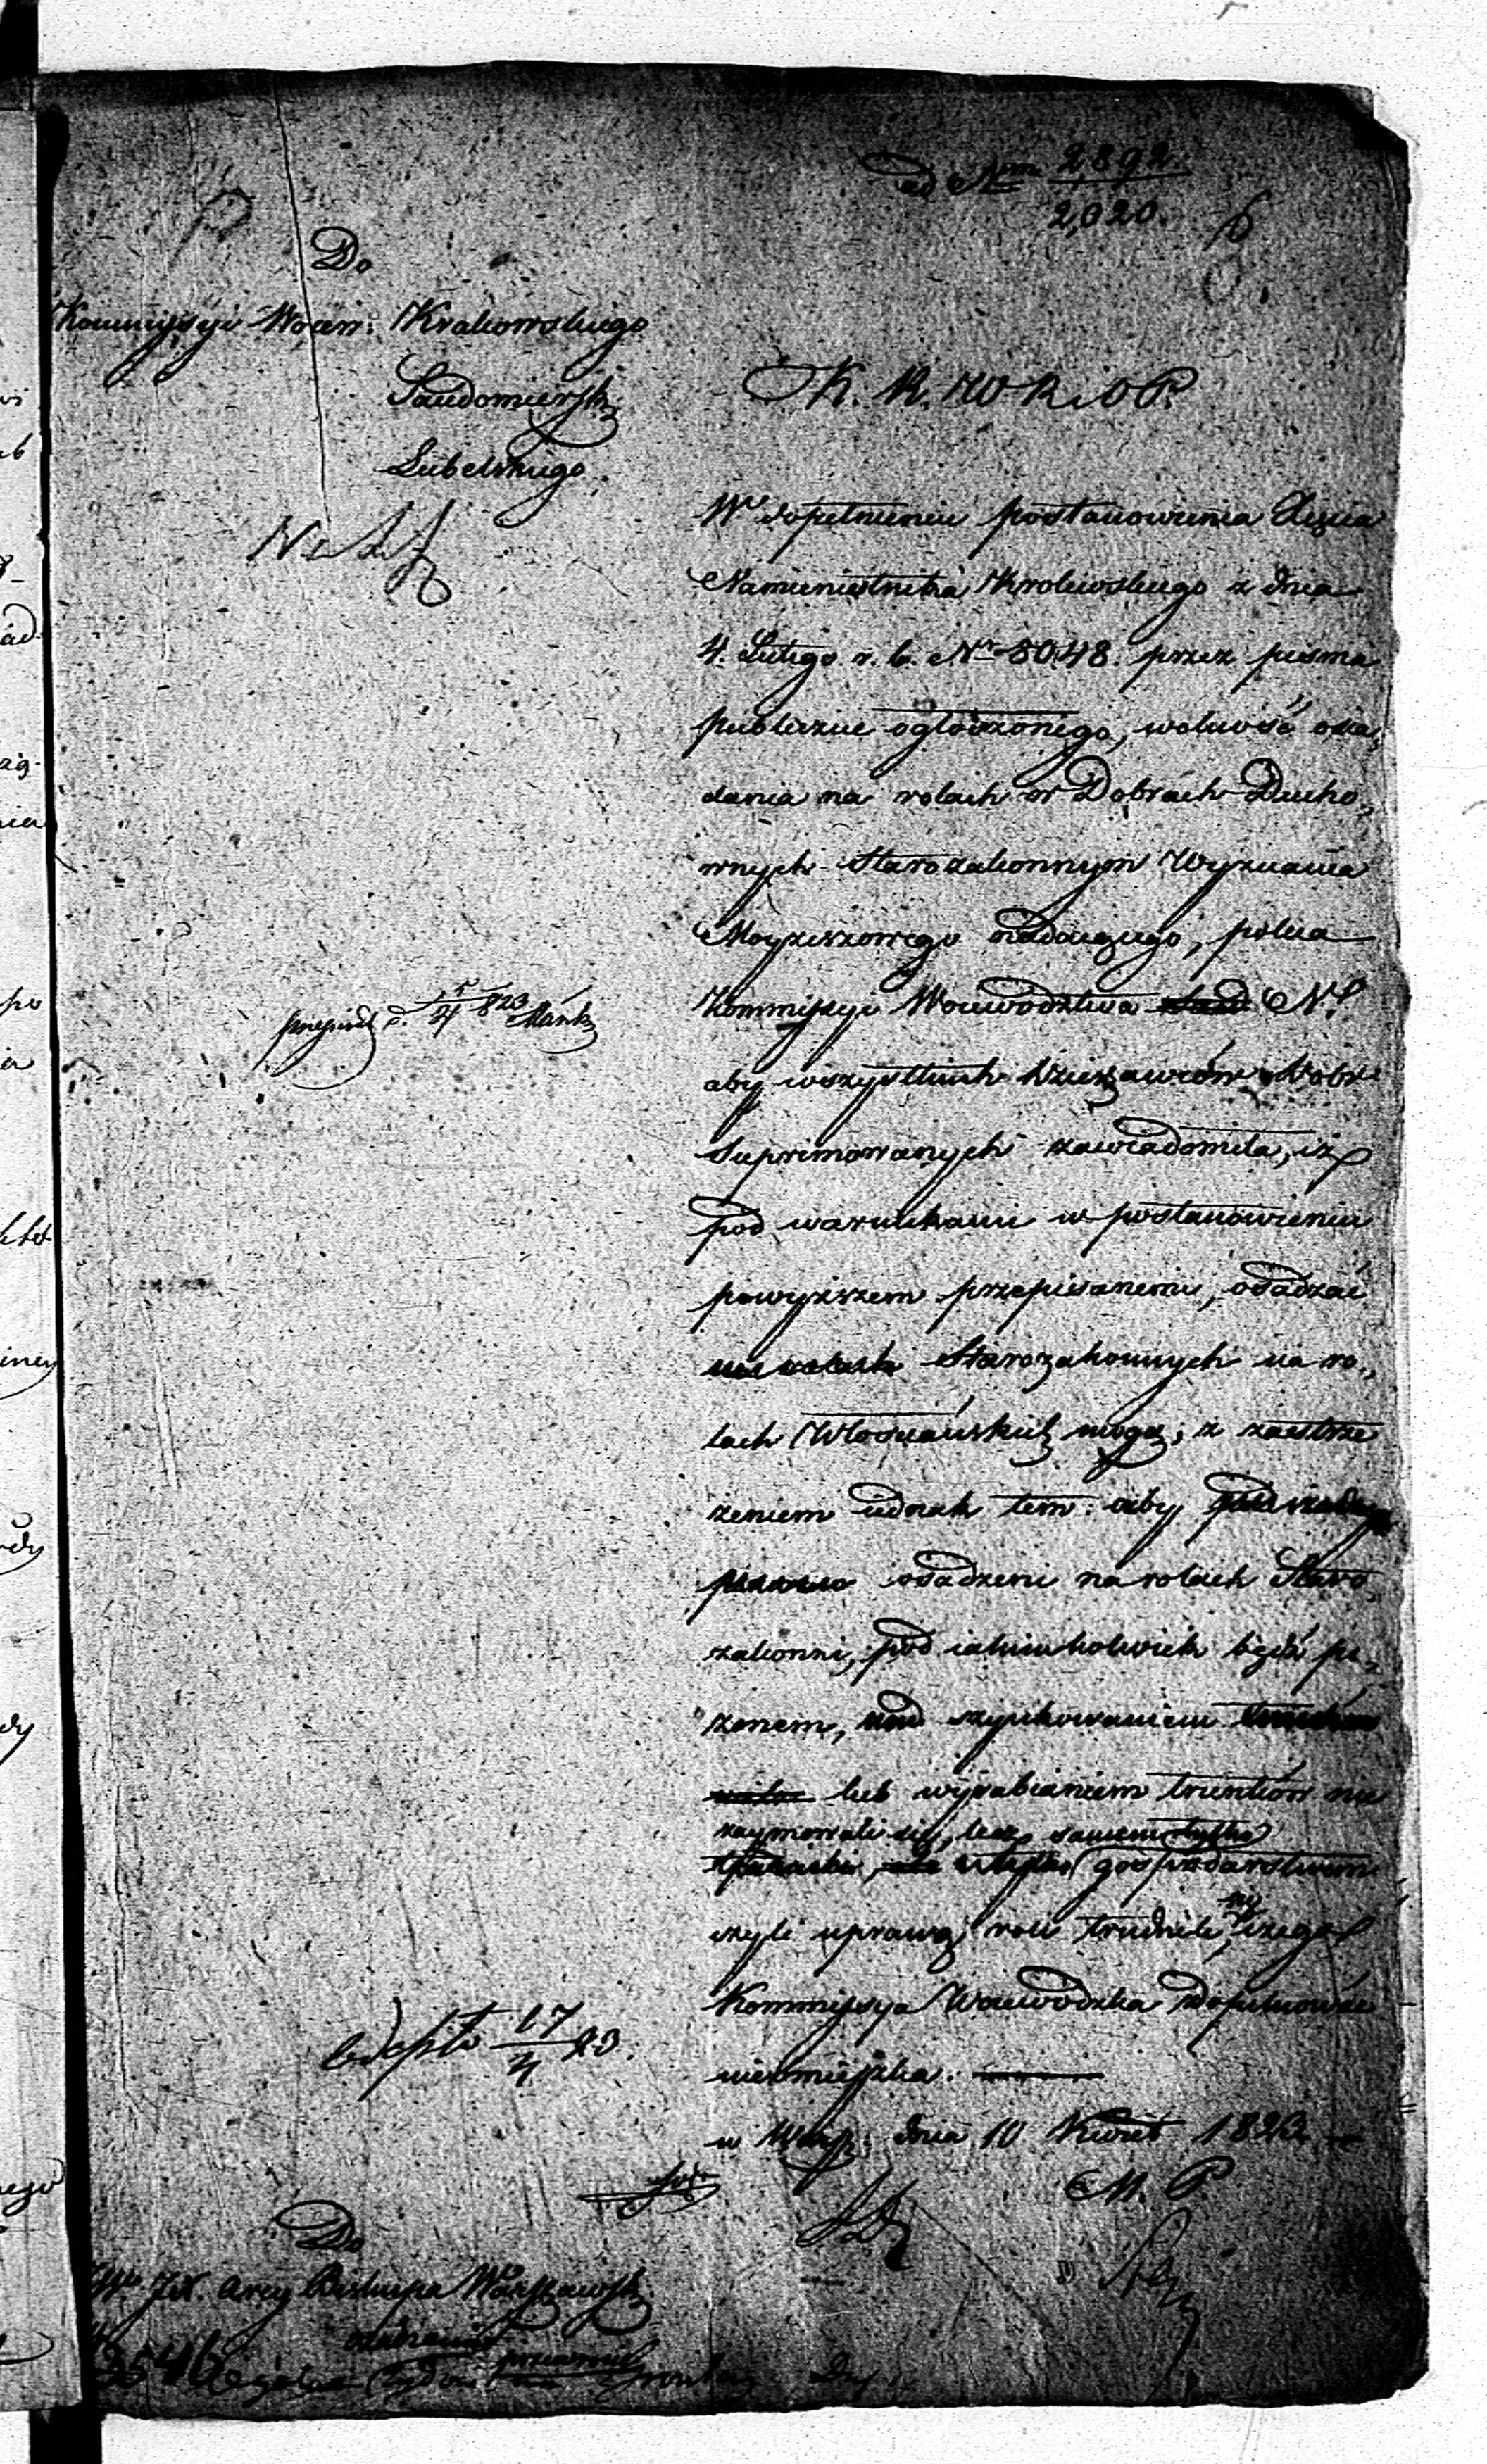 ad Nrm 2892
2,020.
6
Do
Kommissyi Woiew: Krakowskiego
Sandomiersk:
Lubelskiego.
K. R. W R. i O P.
W dopełnieniu postanowienia Xięcia
Namiestnika Krolewskiego z dnia
4. Lutego r. b. Nr 5048. przez pisma
publiczne ogłoszonego, wolność osia,
dania na rolach w Dobrach Ducho,
wnych Starozakonnym Wyznania
Moyżeszowego nadaiącego, poleca
Kommissyi Woiewództwa N.
aby wszystkich Dzierżawców Dobr
Suprimowanych zawiadomiła, iż
pod warunkami w postanowieniu
powyższem przepisanemi, osadzać
Starozakonnych na ro,
lach Włosciańskich mogą; z zastrze
żeniem iednak tem: aby
osadzeni na rolach Staro
zakonni, pod iakimkolwiek bądź po,
zorem, szynkowaniem
lub wyrabianiem trunków nie
zaymowali się, lecz samem tylko
gospodarstwem
czyli uprawą roli trudnili się, czego
Kommissya Woiewodzka dopilnować
nieomieszka.
w Warsz: dnia 10 Kwiet 1823
M. P.
przepisał d. 15/4 823
17/4 23.
Do
JX. Arcy Biskupa Warszawsk:
3546